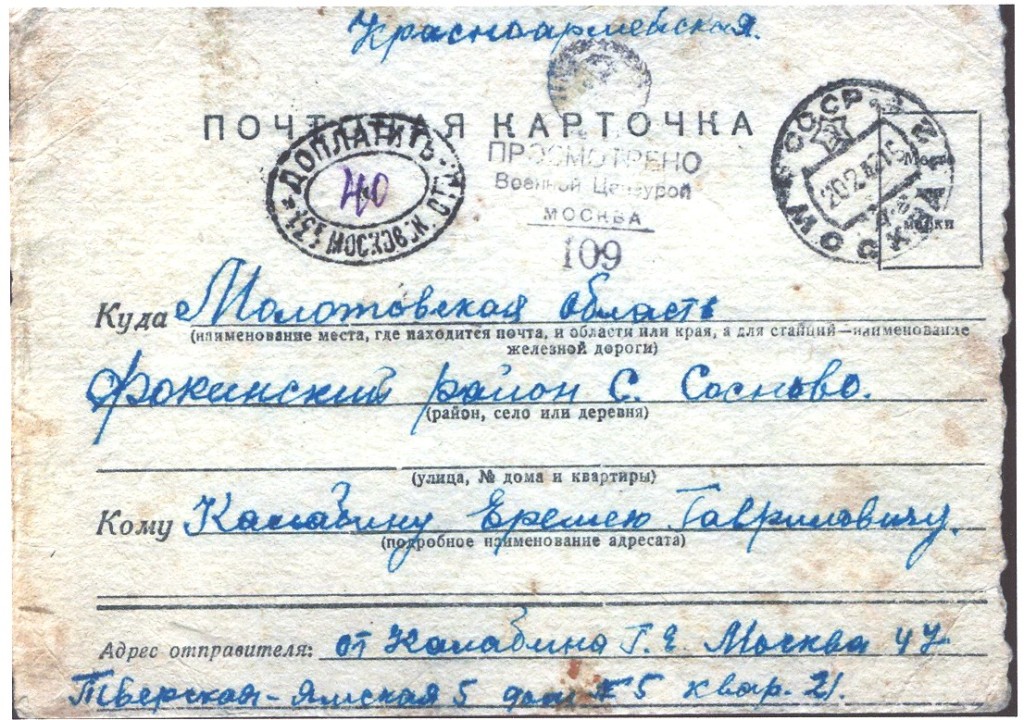 Красноармейская.
ПОЧТОВАЯ КАРТОЧКА
ДОПЛАТИТЬ
40
ПРОСМОТРЕНО
Военной Цензурой
МОСКВА
109
СССР
20 2 42 15
МОСКВА
Место
для
марки
Куда Молотовская область
(наименование места, где находится почта, и области или края, а для станций—наименование
железной дороги)
Фокинский район С. Сосново.
(район, село или деревня)
(улица, № дома и квартиры)
Кому Калабину Еремею Гавриловичу.
(подробное наименование адресата)
Адрес отправителя: от Калабина Г. Е. Москва 47
Тверская-Ямская 5 дом № 5 квар. 21.